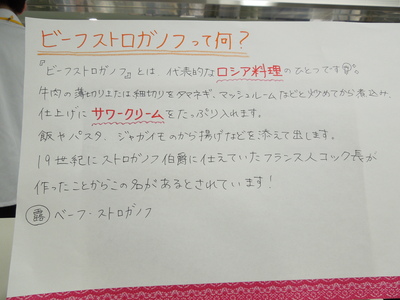 ビーフストロガノフって何？
『ビーフストロガノフ』とは、代表的なロシア料理のひとつです㊞。
牛肉の薄切りまたは細切りをタマネギ、マッシュルームなどと炒めてから煮込み、
仕上げにサワークリームをたっぷり入れます。
飯やパスタ、ジャガイモのから揚げなどを添えて出します。
19世紀にストロガノフ伯爵に仕えていたフランス人コック長が
作ったことからこの名があるとされています！
露 ベーフ・ストロガノフ